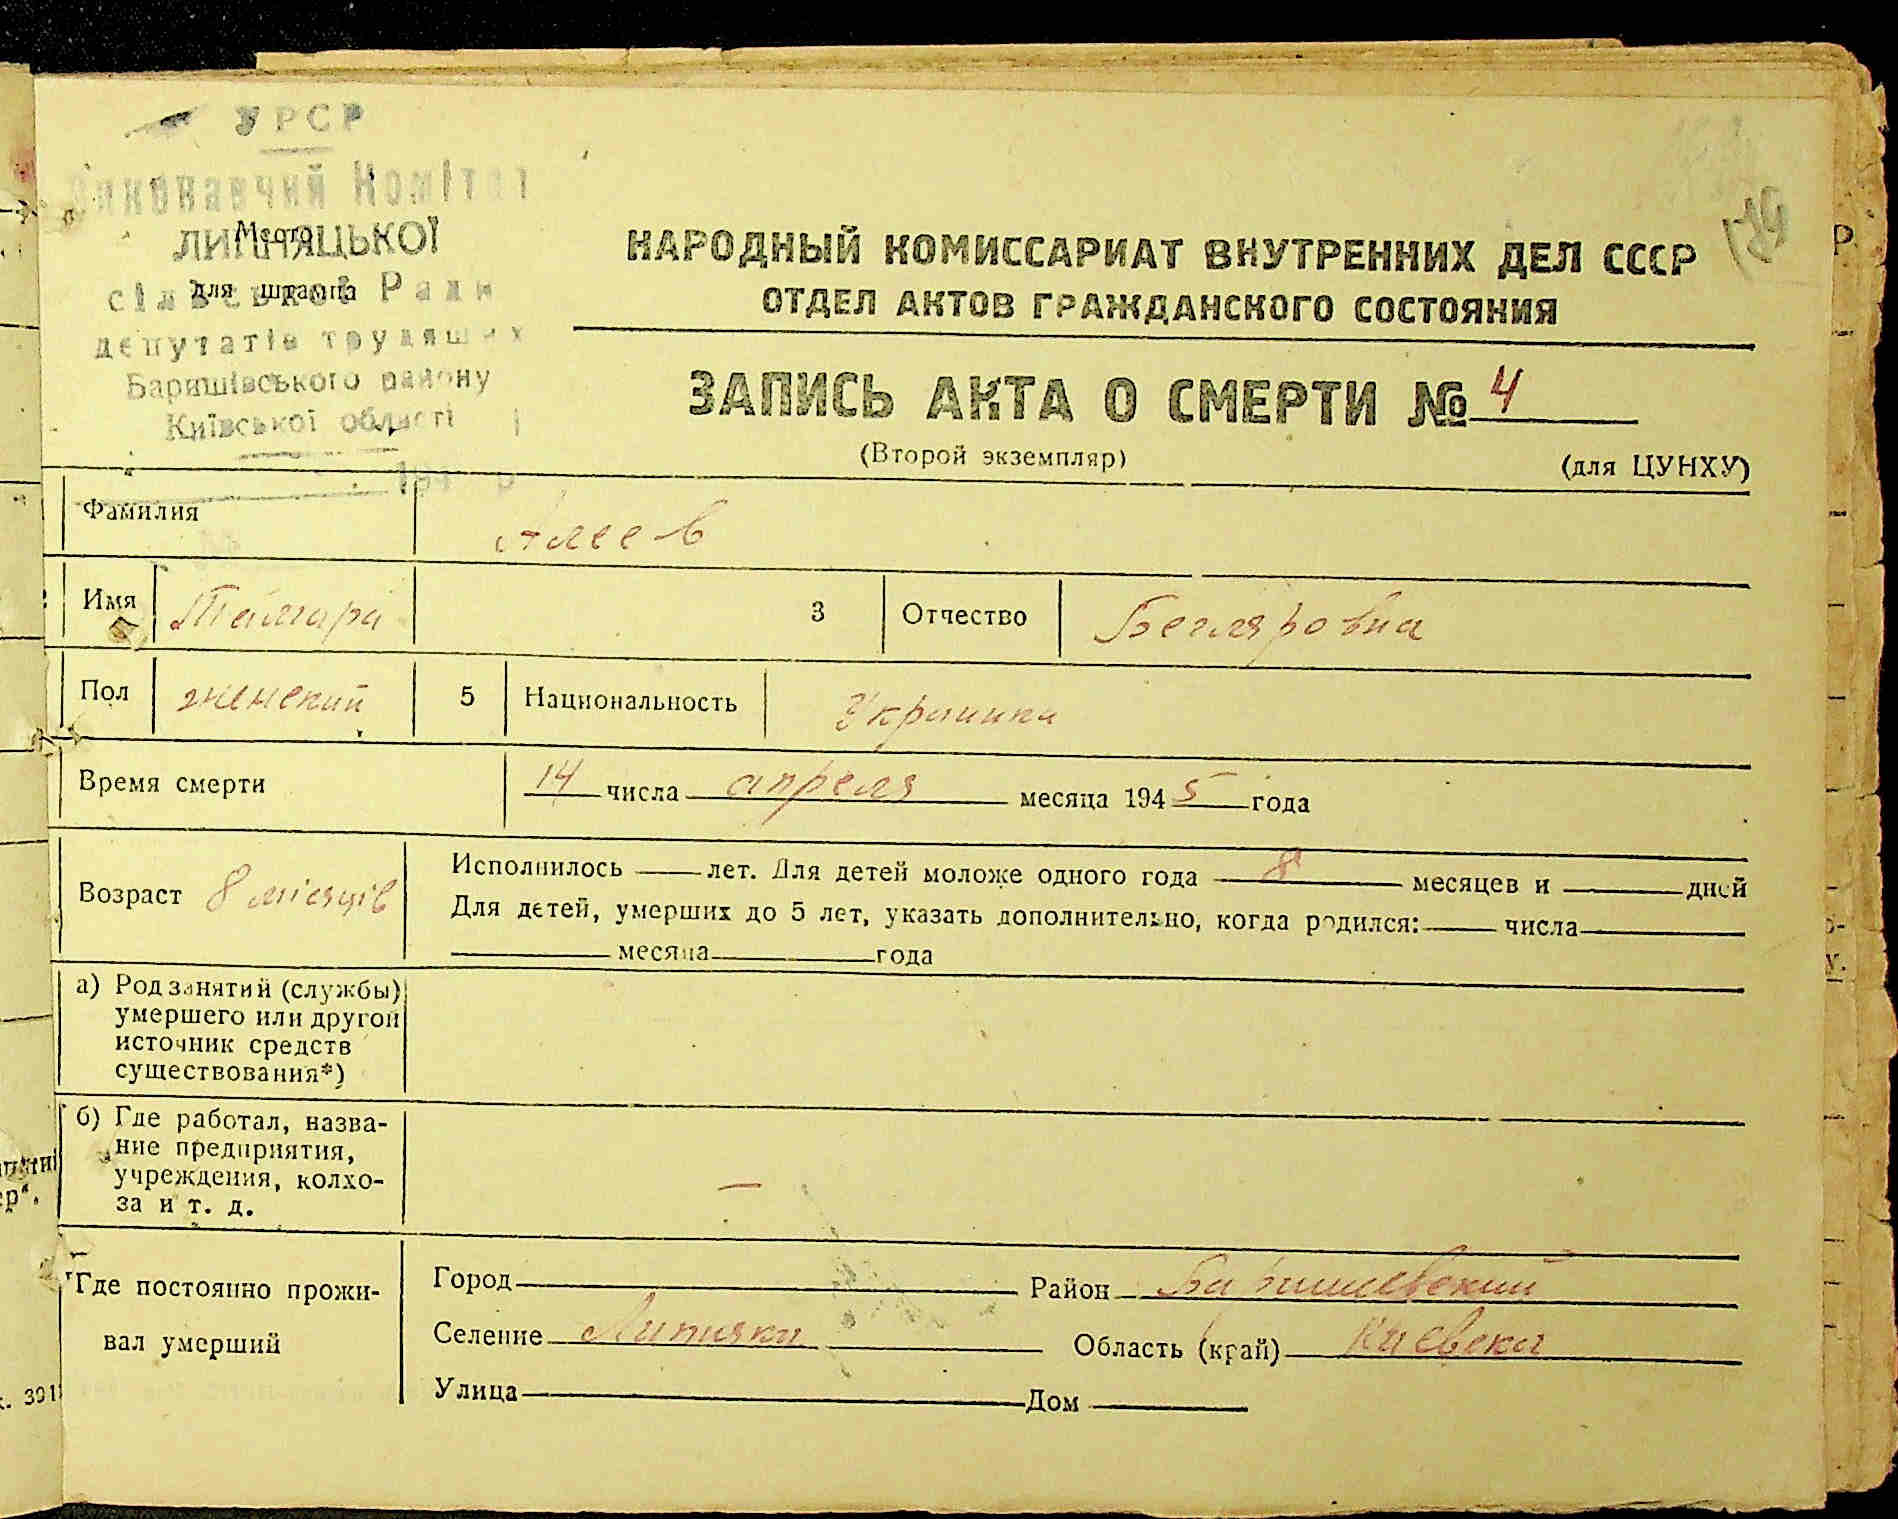 УРСР
Виконавчий Комітет
Место
ЛИПНЯЦЬКОЇ
для штампа
сільської Ради
депутатів трудящих
Баришівського району
Київської області
194 р
139
НАРОДНЫЙ КОМИССАРИАТ ВНУТРЕННИХ ДЕЛ СССР
ОТДЕЛ АКТОВ ГРАЖДАНСКОГО СОСТОЯНИЯ
ЗАПИСЬ АКТА О СМЕРТИ № 4
(Второй экземпляр)
(для ЦУНХУ)
Фамилия Алеев
Имя 3 Отчество Бегляровна
Пол женский 5 Национальность Украинка
Время смерти 14 числа апреля месяца 1945 года
Возраст 8 місяців
Исполнилось лет. Для детей моложе одного года 8 месяцев и дней
Для детей, умерших до 5 лет, указать дополнительно, когда родился: числа
месяца года
а) Род занятий (службы)
умершего или другой
источник средств
существования*)
б) Где работал, назва-
ние предприятия,
учреждения, колхо-
за и т. д.
—
Где постоянно прожи-
вал умерший
Город Район Баришевский
Селение Липняки Область (край) Киевска
Улица Дом